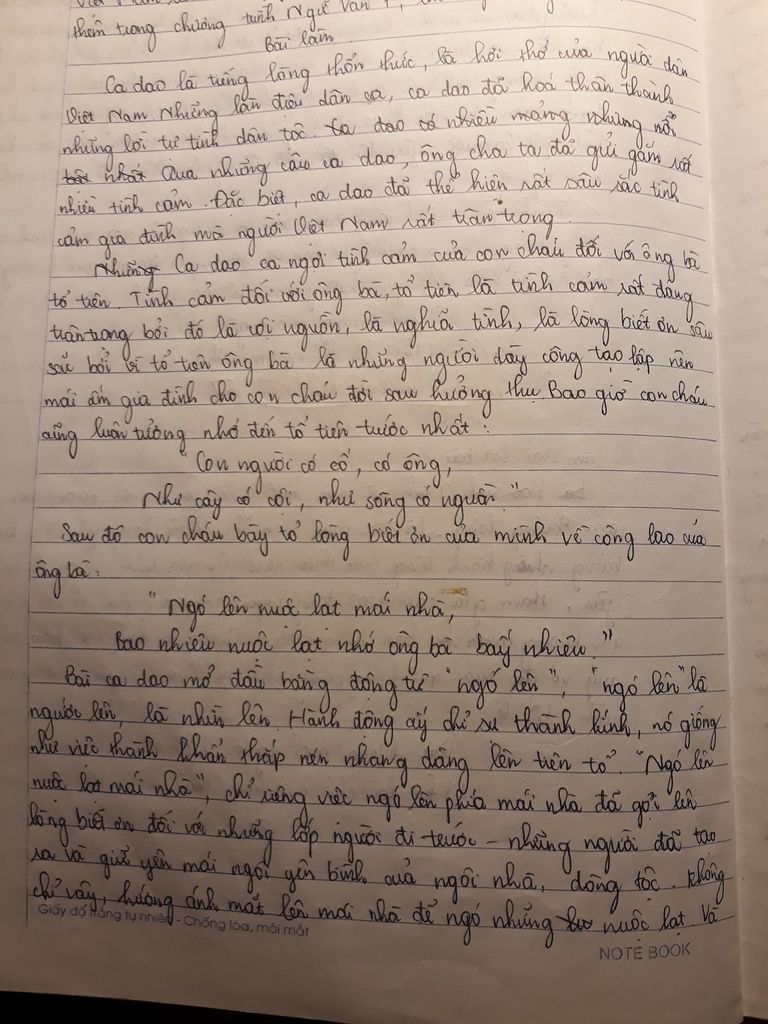 thêm trong chương trình Ngữ Văn 7,
Bài làm
Ca dao là tiếng lòng thổn thức, là hơi thở của người dân
Việt Nam. Những làn điệu dân ca, ca dao đã hoá thân thành
những lời tự tình dân tộc. Ca dao có nhiều mảng nhưng nổi
bật nhất Qua những câu ca dao, ông cha ta đã gửi gắm rất
nhiều tình cảm. Đặc biệt, ca dao đã thể hiện rất sâu sắc tình
cảm gia đình mà người Việt Nam rất trân trọng.
Những Ca dao ca ngợi tình cảm của con cháu đối với ông bà
tổ tiên. Tình cảm đối với ông bà, tổ tiên là tình cảm rất đáng
trân trọng bởi đó là cội nguồn, là nghĩa tình, là lòng biết ơn sâu
sắc bởi vì tổ tiên ông bà là những người dày công tạo lập nên
mái ấm gia đình cho con cháu đời sau hưởng thụ. Bao giờ con cháu
cũng luôn tưởng nhớ đến tổ tiên trước nhất:
"Con người có cố, có ông,
Như cây có cội, như sông có nguồn."
Sau đó con cháu bày tỏ lòng biết ơn của mình về công lao của
ông bà:
"Ngó lên nuộc lạt mái nhà,
Bao nhiêu nuộc lạt nhớ ông bà bấy nhiêu."
Bài ca dao mở đầu bằng động từ "ngó lên", "ngó lên" là
ngước lên, là nhìn lên. Hành động ấy chỉ sự thành kính, nó giống
như việc thành khẩn thắp nén nhang dâng lên tiên tổ. "Ngó lên
nuộc lạt mái nhà", chỉ riêng việc ngó lên phía mái nhà đã gợi lên
lòng biết ơn đối với những lớp người đi trước - những người đã tạo
ra và giữ yên mái ngôi yên bình của ngôi nhà, dòng tộc. Không
chỉ vậy, hướng ánh mắt lên mái nhà để ngó những nuộc lạt và
Giấy độ trắng tự nhiên - Chống lóa, mỏi mắt
NOTE BOOK